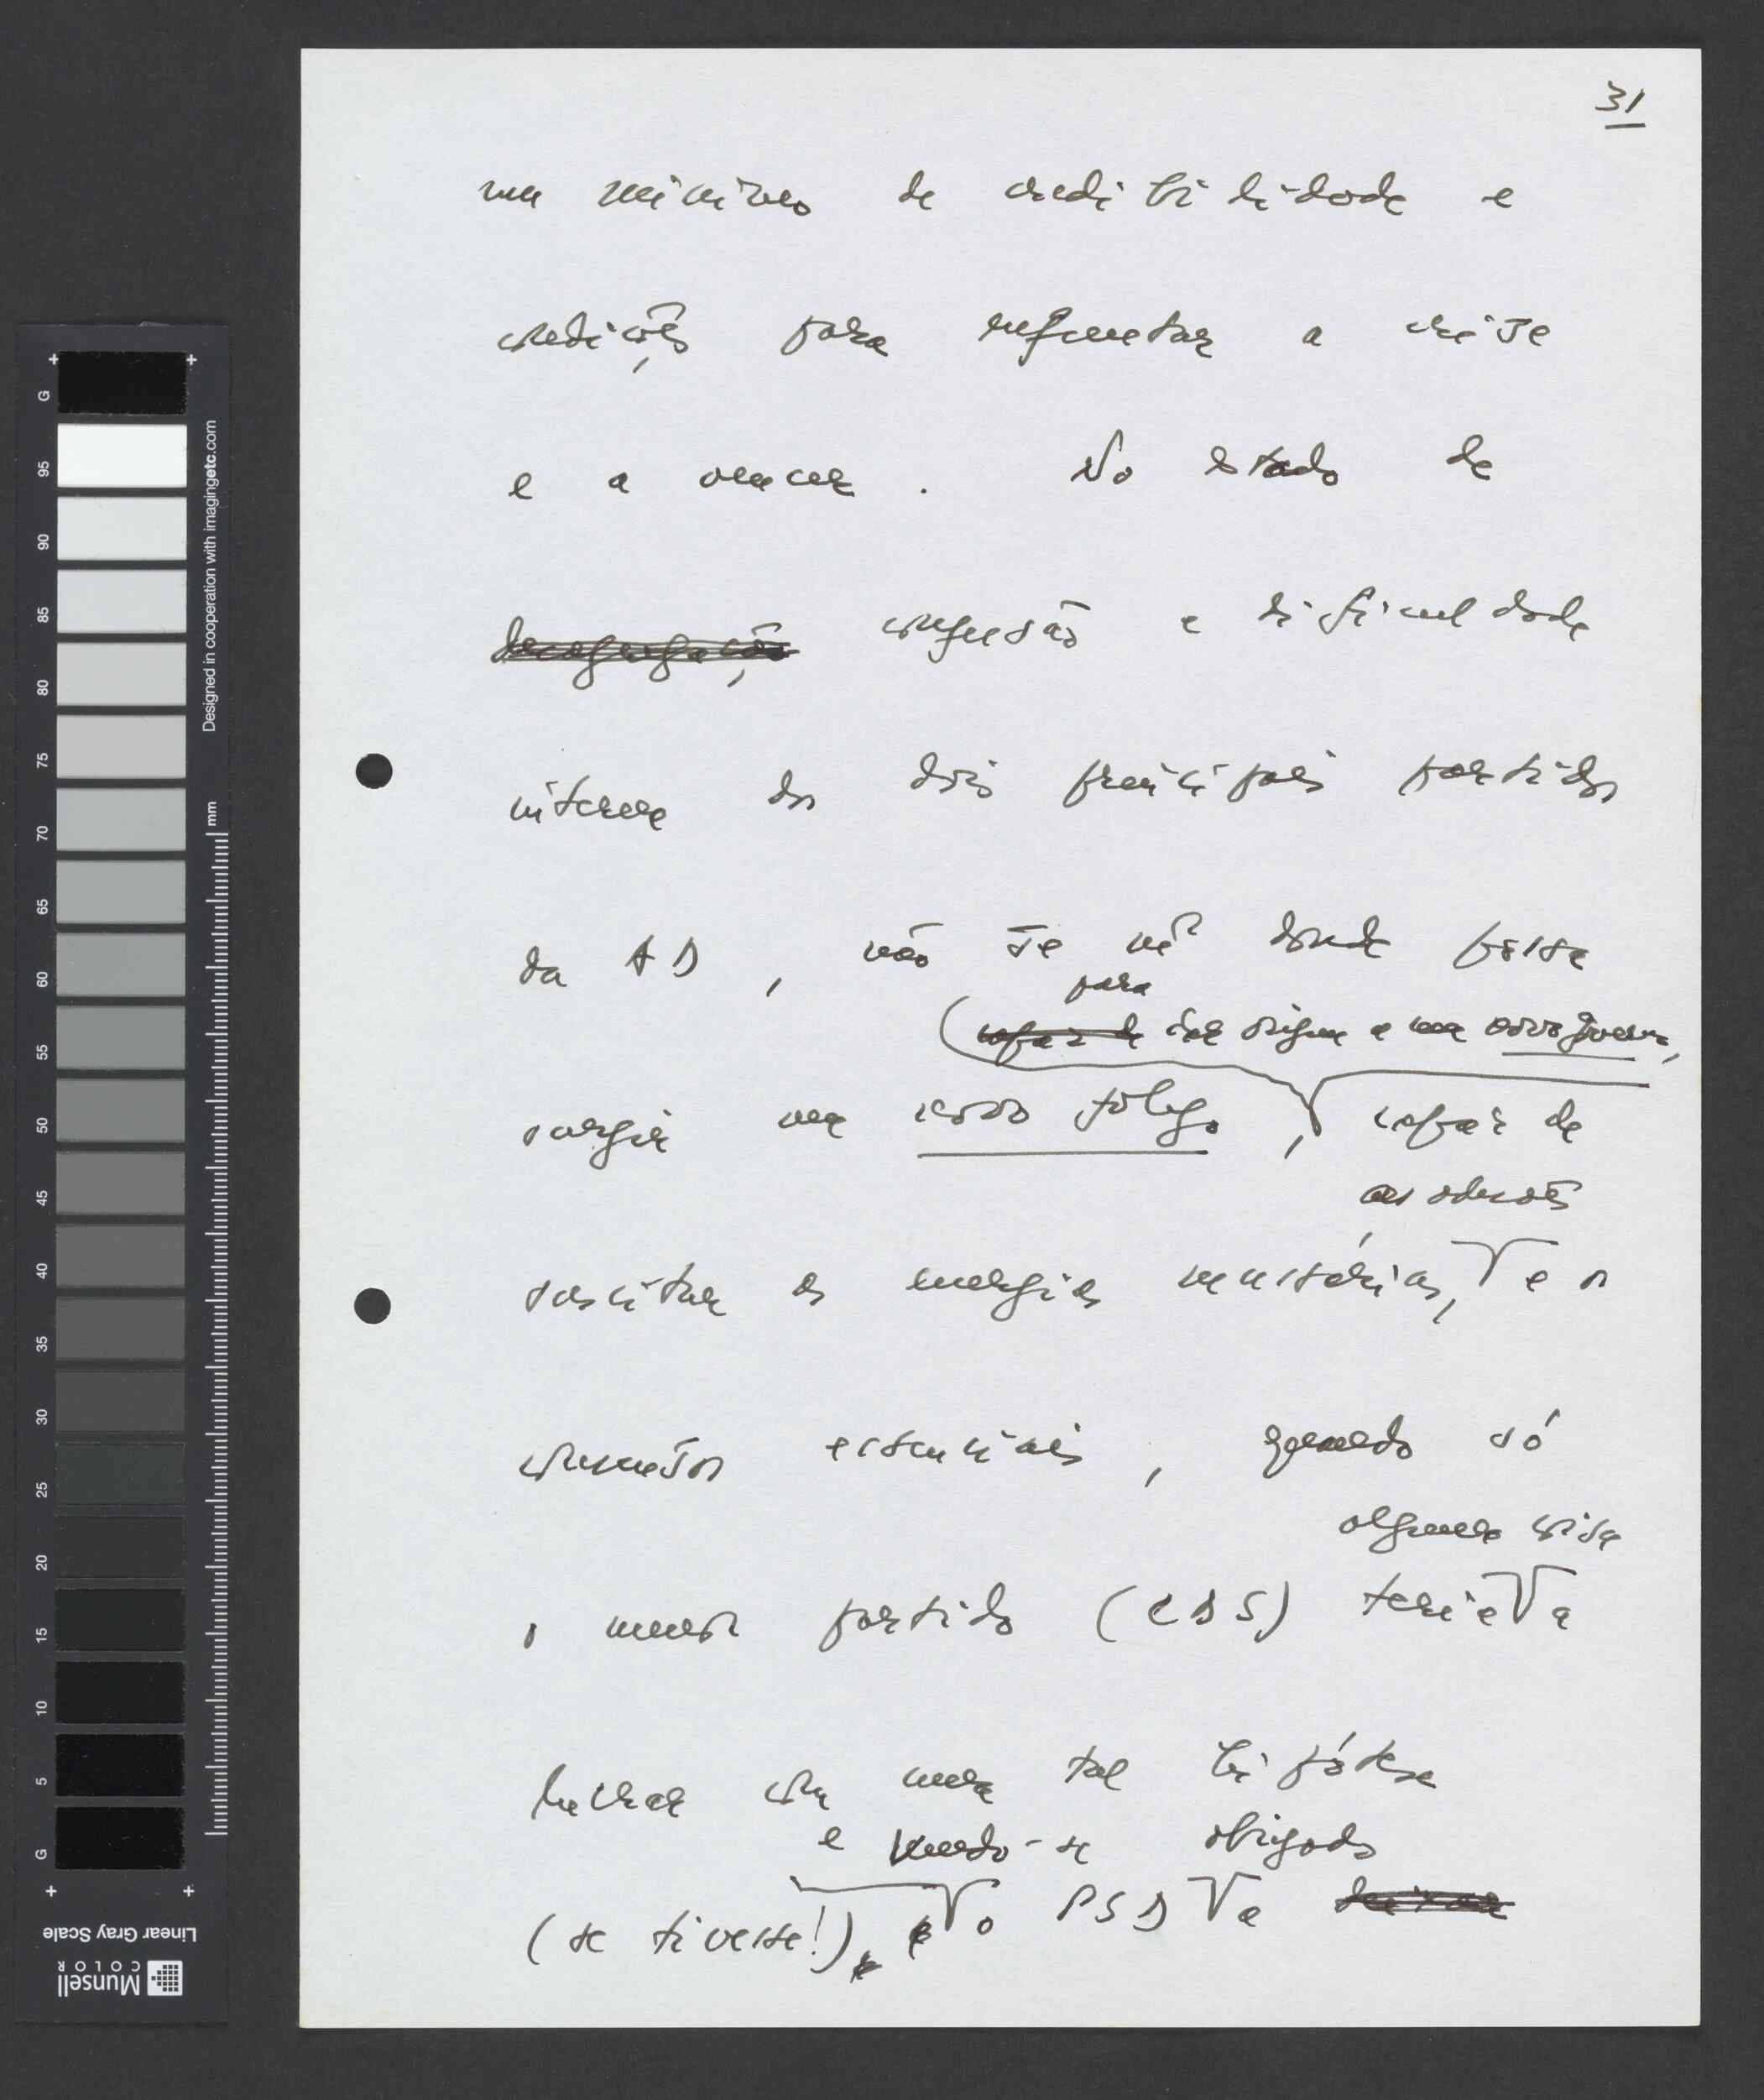 31
um mínimo de credibilidade e
condições para enfrentar a crise
e a vencer. No estado de
confusão e dificuldade
interna dos dois principais partidos
da AD, não se vê donde possa
para
(capaz de dar origem a um novo governo,
surgir um novo fôlego, capaz de
as adesões
suscitar as energias necessárias, e os
consensos essenciais, quando só
alguma coisa
o menor partido (CDS) teria a
lucrar com uma tal hipótese
e vendo-se obrigado
(se tivesse!), o PSD a deixar
G
95
90
85
80
75
70
65
60
55
50
45
40
35
30
25
20
15
10
5
G
Designed in cooperation with imagingetc.com
mm
Munsell
COLOR
Linear Gray Scale